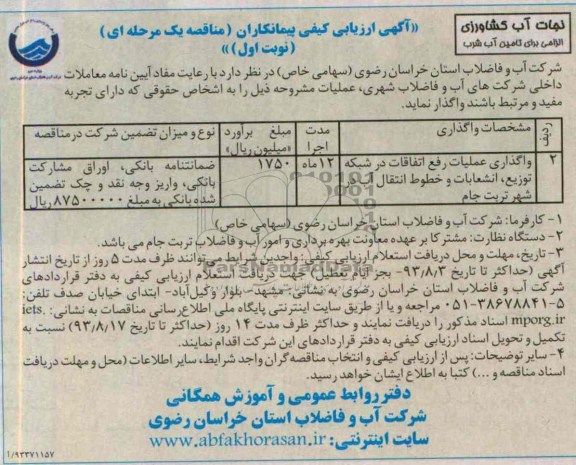 نجات آب کشاورزی
الزامی برای تامین آب شرب
«آگهی ارزیابی کیفی پیمانکاران (مناقصه یک مرحله ای)
(نوبت اول)»
شرکت آب و فاضلاب استان خراسان رضوی (سهامی خاص) در نظر دارد با رعایت مفاد آیین نامه معاملات
داخلی شرکت های آب و فاضلاب شهری، عملیات مشروحه ذیل را به اشخاص حقوقی که دارای تجربه
مفید و مرتبط باشند واگذار نماید.
ردیف مشخصات واگذاری مدت اجرا مبلغ برآورد «میلیون ریال» نوع و میزان تضمین شرکت در مناقصه
۲ واگذاری عملیات رفع اتفاقات در شبکه ۱۲ماه ۱۷۵۰ ضمانتنامه بانکی، اوراق مشارکت
توزیع، انشعابات و خطوط انتقال آب در بانکی، واریز وجه نقد و چک تضمین
شهر تربت جام شده بانکی به مبلغ ۸۷۵۰۰۰۰۰ ریال
۱- کارفرما: شرکت آب و فاضلاب استان خراسان رضوی (سهامی خاص)
۲- دستگاه نظارت: مشترکا بر عهده معاونت بهره برداری و امور آب و فاضلاب تربت جام می باشد.
۳- تاریخ، مهلت و محل دریافت استعلام ارزیابی کیفی: واجدین شرایط می‌توانند ظرف مدت ۵ روز از تاریخ انتشار
آگهی (حداکثر تا تاریخ ۹۳/۸/۳- بجز ایام تعطیل) جهت دریافت استعلام ارزیابی کیفی به دفتر قراردادهای
شرکت آب و فاضلاب استان خراسان رضوی به نشانی: مشهد- بلوار وکیل‌آباد- ابتدای خیابان صدف تلفن:
۰۵۱-۳۸۶۷۸۸۴۱-۵ مراجعه و یا از طریق سایت اینترنتی پایگاه ملی اطلاع‌رسانی مناقصات به نشانی: iets.
mporg.ir اسناد مذکور را دریافت نمایند و حداکثر ظرف مدت ۱۴ روز (حداکثر تا تاریخ ۹۳/۸/۱۷) نسبت به
تکمیل و تحویل اسناد ارزیابی کیفی به دفتر قراردادهای این شرکت اقدام نمایند.
۴- سایر توضیحات: پس از ارزیابی کیفی و انتخاب مناقصه گران واجد شرایط، سایر اطلاعات (محل و مهلت دریافت
اسناد مناقصه و ...) کتبا به اطلاع ایشان خواهد رسید.
دفتر روابط عمومی و آموزش همگانی
شرکت آب و فاضلاب استان خراسان رضوی
سایت اینترنتی: www.abfakhorasan.ir
۹۳۳۷۱۱۵۷/آ